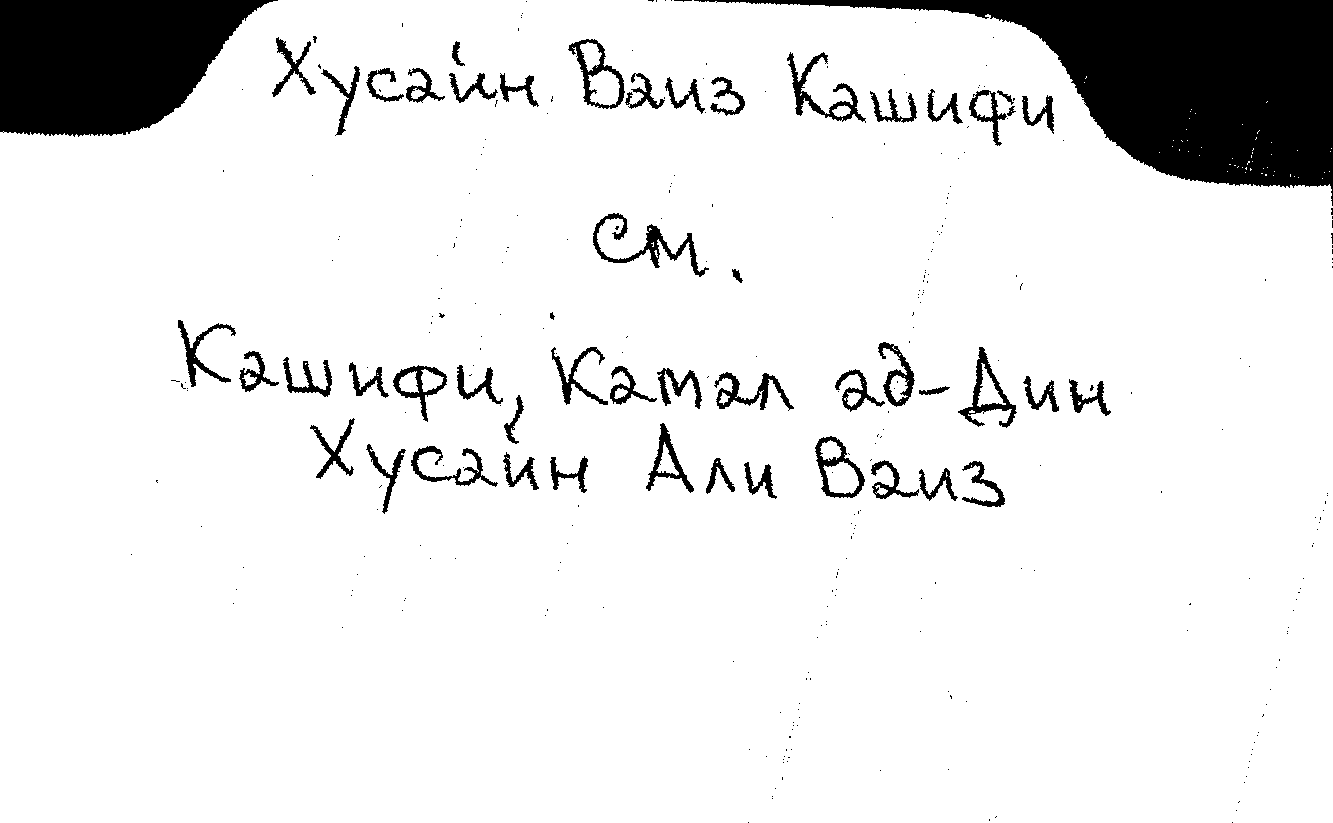 Хусайн Ваиз Кашифи
см.
Кашифи, Камал ад-Дин
Хусайн Али Ваиз